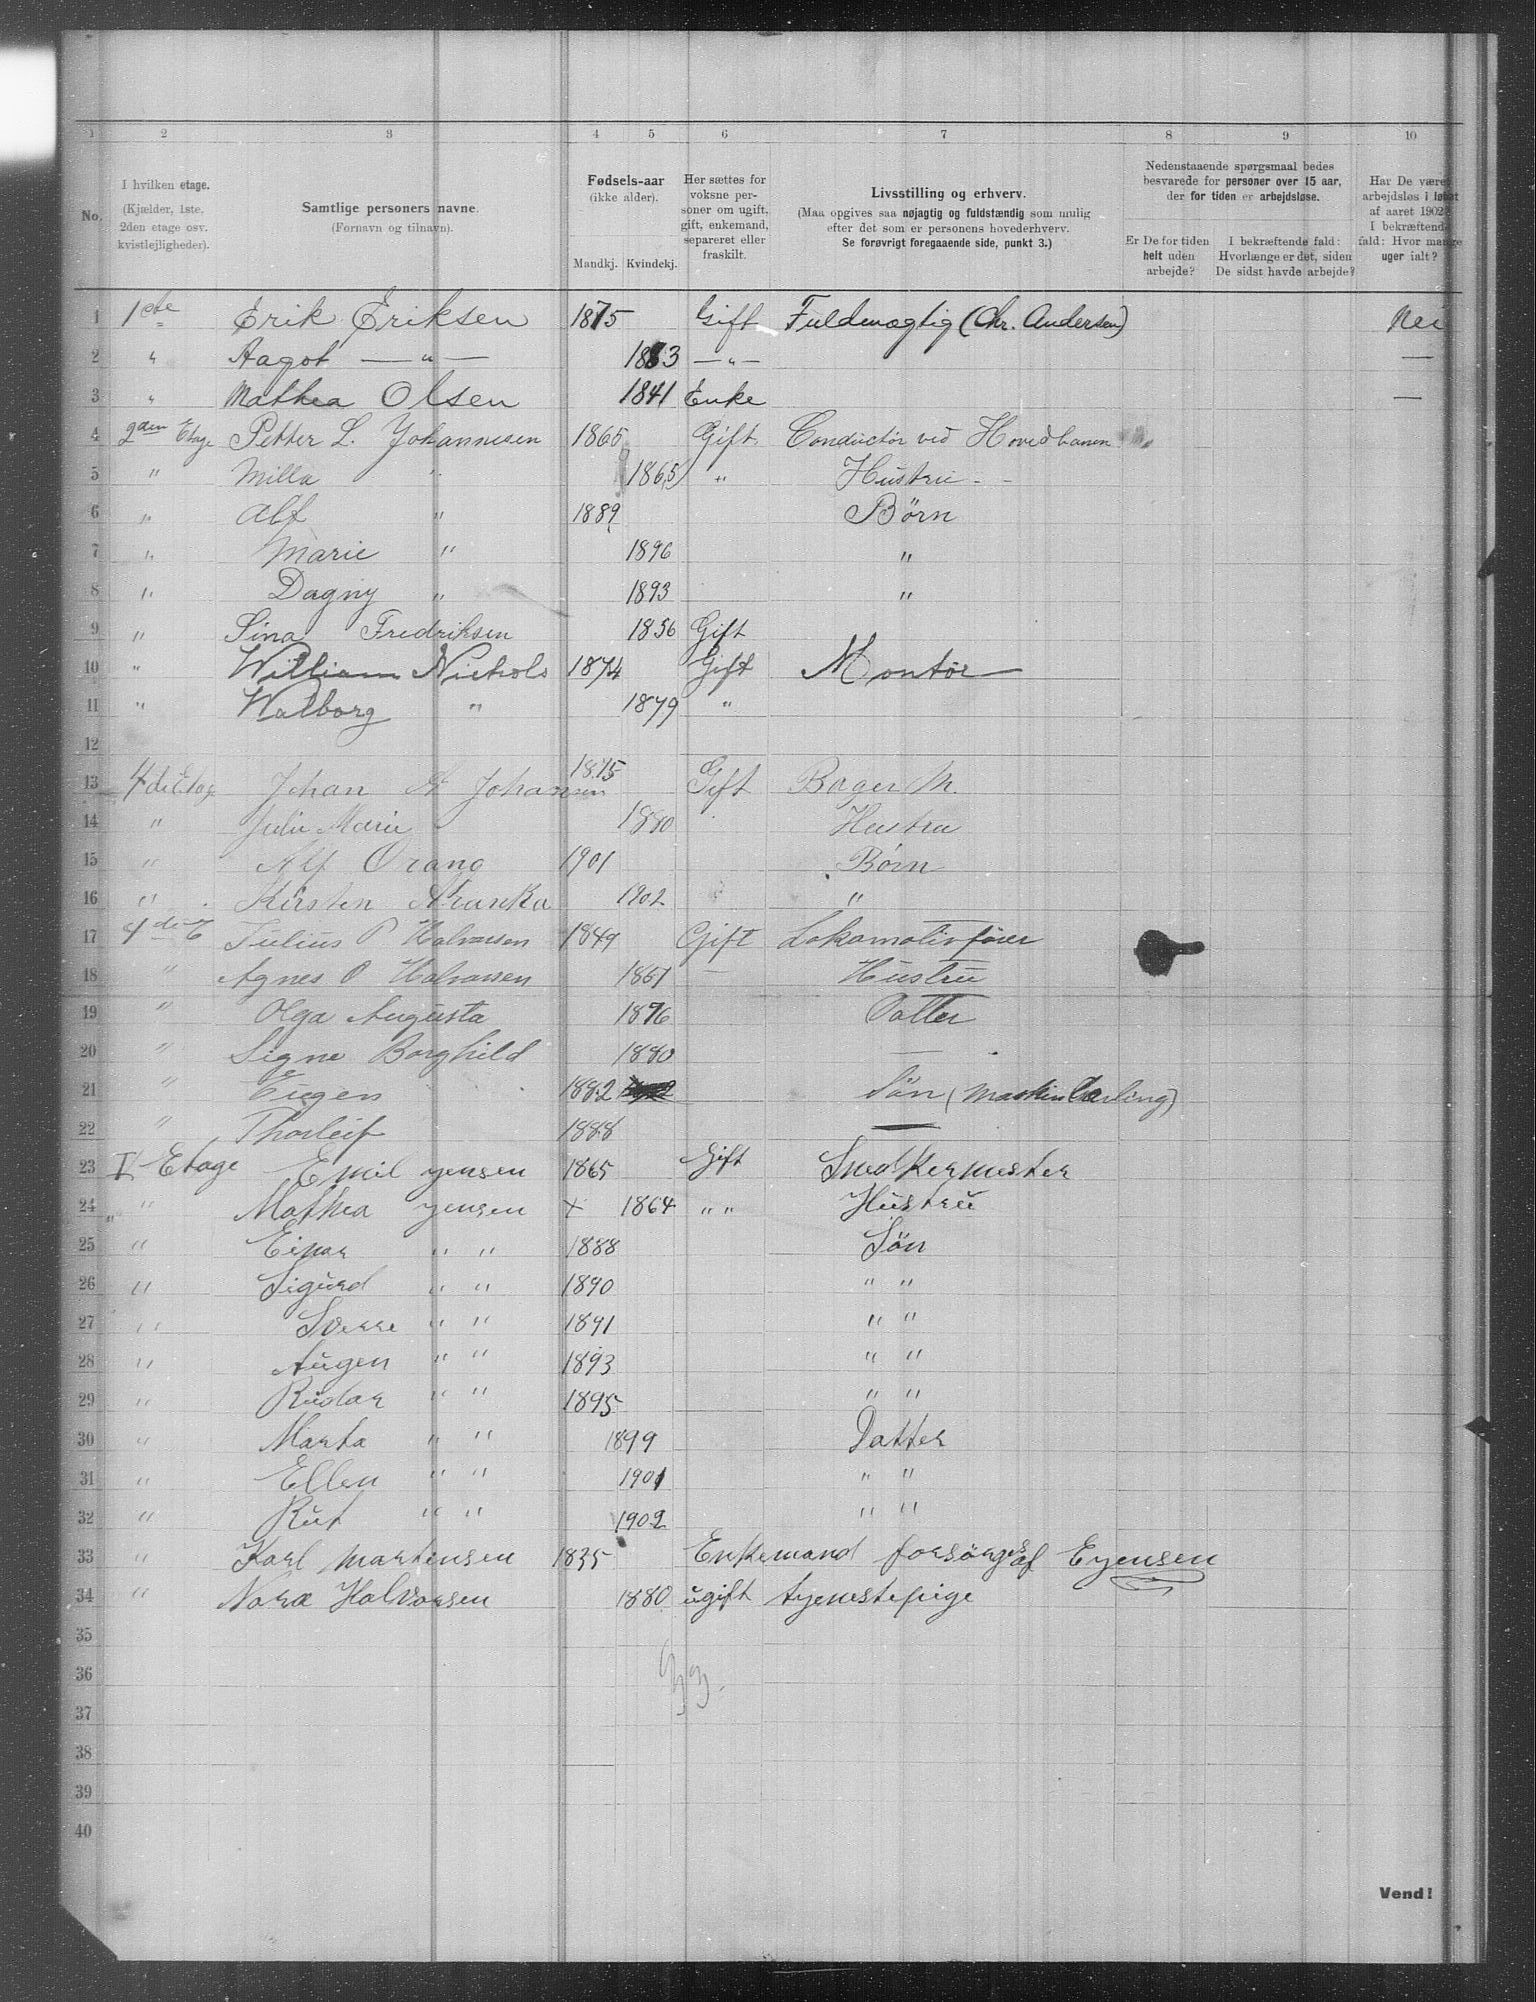 1 2 3 4 5 6 7 8 9 10
No.
I hvilken etage.
(Kjælder, 1ste, 2den etage osv. kvistlejligheder).
Samtlige personers navne.
(Fornavn og tilnavn).
Fødsels-aar
(ikke alder).
Mandkj. Kvindekj.
Her sættes for voksne personer om ugift, gift, enkemand, separeret eller fraskilt.
Livsstilling og erhverv.
(Maa opgives saa nøjagtig og fuldstændig som mulig
efter det som er personens hovederhverv.
Se forøvrigt foregaaende side, punkt 3.)
Nedenstaaende spørgsmaal bedes
besvarede for personer over 15 aar,
der for tiden er arbejdsløse.
Er De for tiden helt uden arbejde?
I bekræftende fald: Hvorlænge er det, siden De sidst havde arbejde?
Har De været arbejdsløs i løbet af aaret 1902? I bekræftende fald: Hvor mange uger ialt?
1 1ste Erik Eriksen 1875 Gift Fuldmægtig (Chr. Andersen) Nei
2 " Aagot — " — 1883 — " — —
3 " Mathea Olsen 1841 Enke —
4 2den Etage Petter L. Johannesen 1865 Gift Conductør ved Hovedbanen
5 " Milla " 1865 " Hustru - -
6 " Alf " 1889 Børn
7 " Marie " 1896 "
8 " Dagny " 1893 "
9 " Sina Fredriksen 1856 Gift
10 " William Nichols 1874 Gift Montør
11 " Walborg " 1879 "
12
13 4de Etag. Johan A Johansen 1875 Gift Bager M.
14 " Julie Marie 1880 Hustru
15 " Alf 1901 Børn
16 " Kirsten 1902 "
17 4de E Julius P Halvorsen 1849 Gift Lokomotivfører
18 " Agnes O Halvorsen 1851 — Hustru
19 " Olga Augusta 1876 Datter
20 " Signe Borghild 1880 —
21 " Eugen 1882 Søn (Maskinlærling)
22 " Thorleif 1888 —
23 Etage Emil yensen 1865 Gift Snedkermester
24 " Mathea yensen + 1864 " " Hustru
25 " Einar " " 1888 Søn
26 " Sigurd " " 1890 " "
27 " Sverre " " 1891 " "
28 " Augen " " 1893 " "
29 " " " 1895 " "
30 " Marta " " 1899 Datter
31 " Ellen " " 1901 " "
32 " Rut " " 1902 " "
33 " Karl Martinsen 1835 Enkemand forsørges af Eyensen
34 " Nora Halvorsen 1880 ugift tyenestepige
35
36
33.
37
38
39
40
Vend!